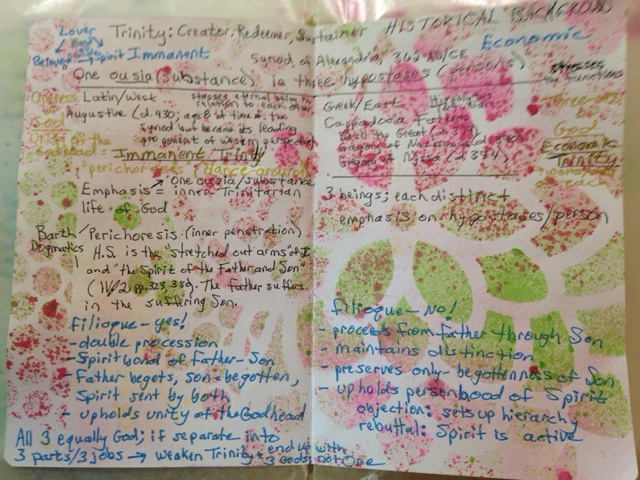 Lover
Trinity: Creator, Redeemer, Sustainer HISTORICAL BACKGROUND
Beloved Spirit Immanent
Synod of Alexandria, 362 AD/CE
Economic
One ousia (substance) in three hypostases (persons)
stresses
functions
Latin/West
stresses eternal being in
relation to each other
Augustine (d. 430; age 8 at time of the
Synod but became its leading
proponent of western perspective)
Immanent/Trinity
perichoresis (dance-around)
Emphasis → one ousia/substance
inner Trinitarian
life of God
Barth Perichoresis (inner penetration)
Dogmatics H.S. is the "stretched out arms" of
and "the Spirit of the Father and Son"
The Father suffers
in the suffering Son.
Filioque - yes!
- double procession
- Spirit bond of Father-Son
- Father begets, Son = begotten,
Spirit sent by both
- upholds unity of the Godhead
All 3 equally God; if separate into
3 parts/3 jobs → weaken Trinity + end up with
3 Gods, not One
Greek/East
Cappadocia Fathers
Basil the Great (d. 379)
Gregory of Nazianzus
Gregory of Nyssa (d. 394)
God
Economic
Trinity
3 beings; each distinct
emphasis on hypostases/person
Filioque - No!
- process from Father through Son
- maintains distinction
- preserves only-begottenness of Son
- upholds personhood of Spirit
objection: sets up hierarchy
rebuttal: Spirit is active